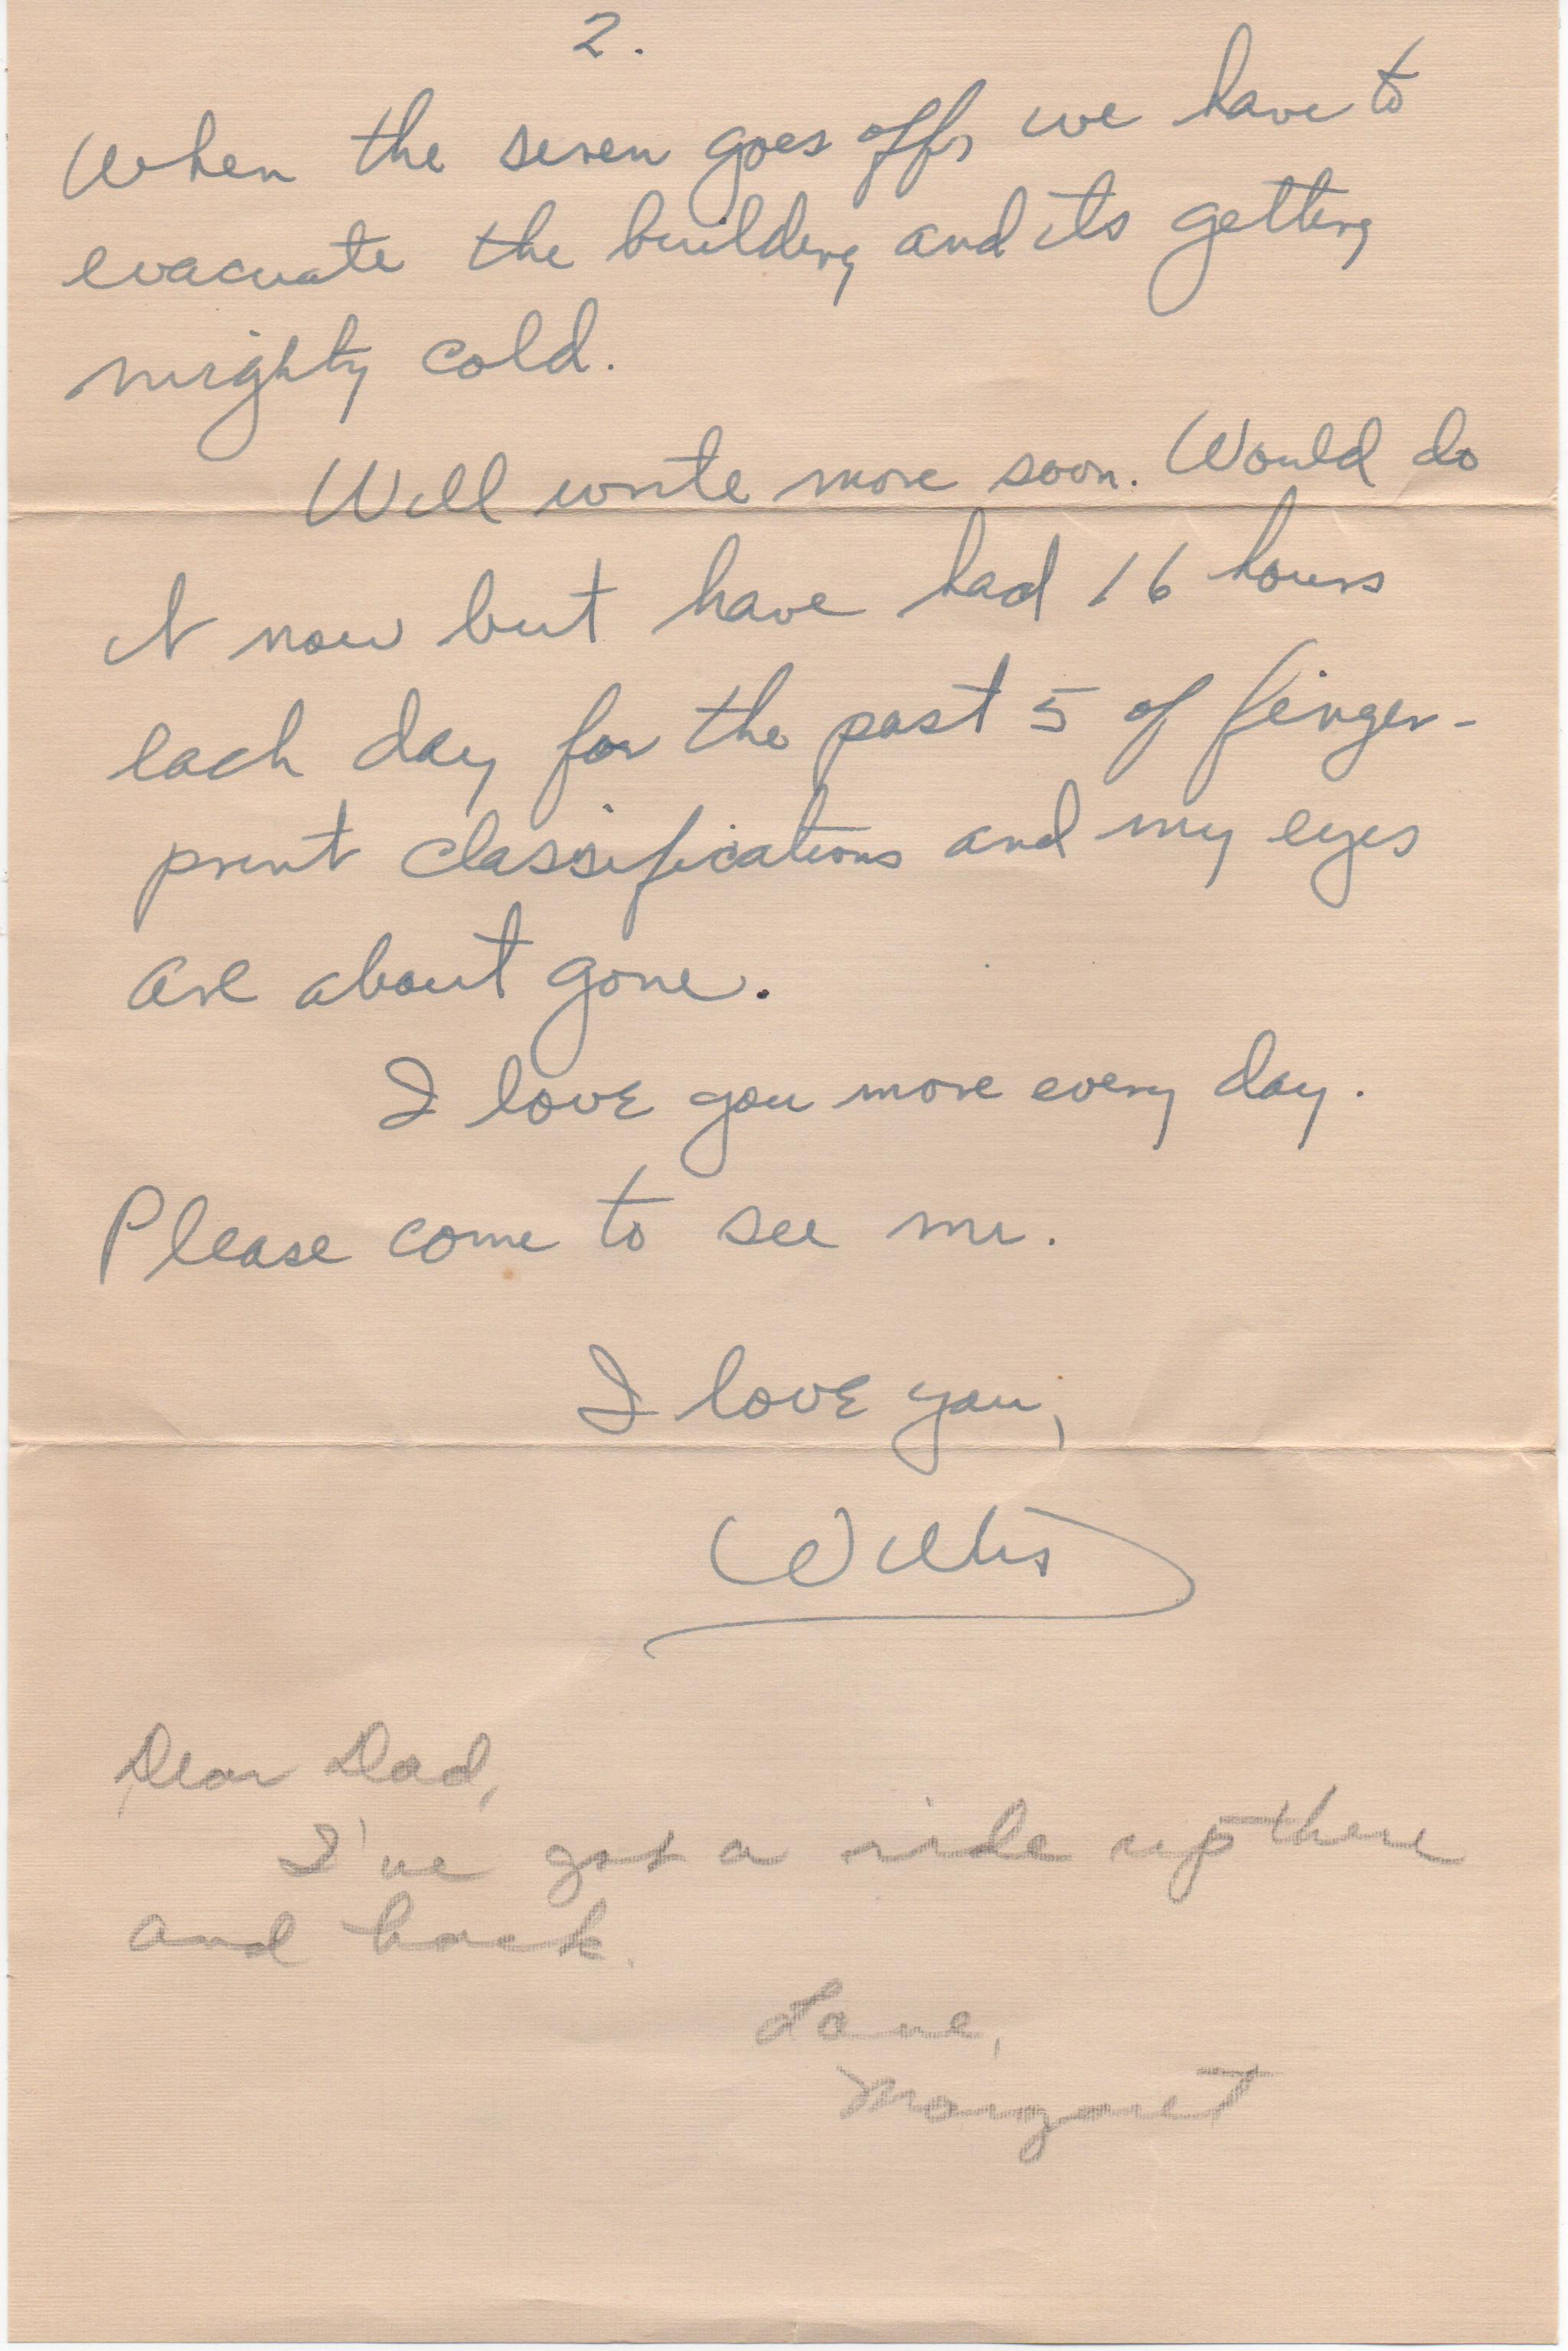 2.
When the seren goes off, we have to
evacuate the building and its getting
mighty cold.
Will write more soon. Would do
it now but have had 16 hours
each day for the past 5 of finger-
print classifications and my eyes
are about gone.
I love you more every day.
Please come to see me.
I love you,
Willis
Dear Dad,
I've got a ride up there
and back.
Love,
Margaret